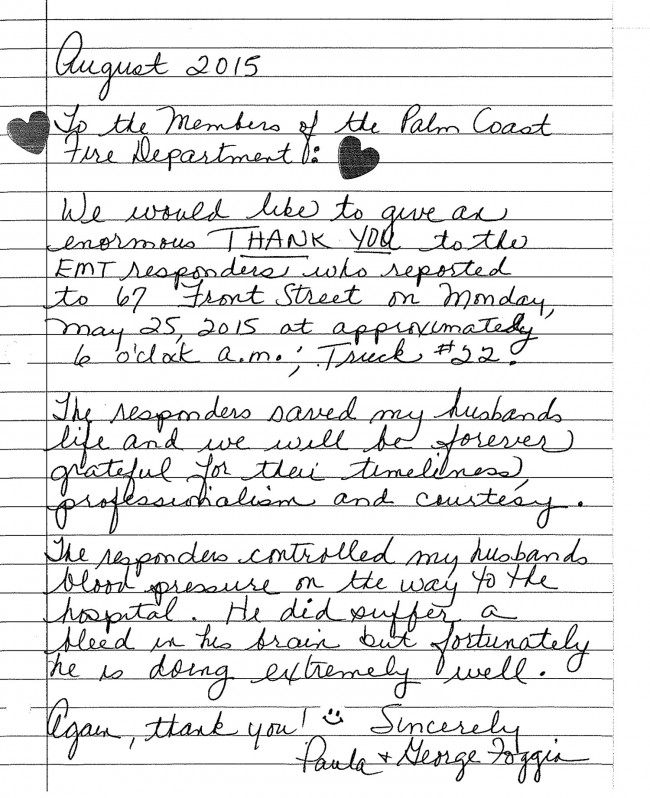 August 2015
To the Members of the Palm Coast
Fire Department:
We would like to give an
enormous THANK YOU to the
EMT responders who reported
to 67 Front Street on Monday,
May 25, 2015 at approximately
6 o'clock a.m.; Truck #22.
The responders saved my husbands
life and we will be forever
grateful for their timeliness,
professionalism and courtesy.
The responders controlled my husbands
blood pressure on the way to the
hospital. He did suffer a
bleed in his brain but fortunately
he is doing extremely well.
Again, thank you! Sincerely
Paula + George Foggia